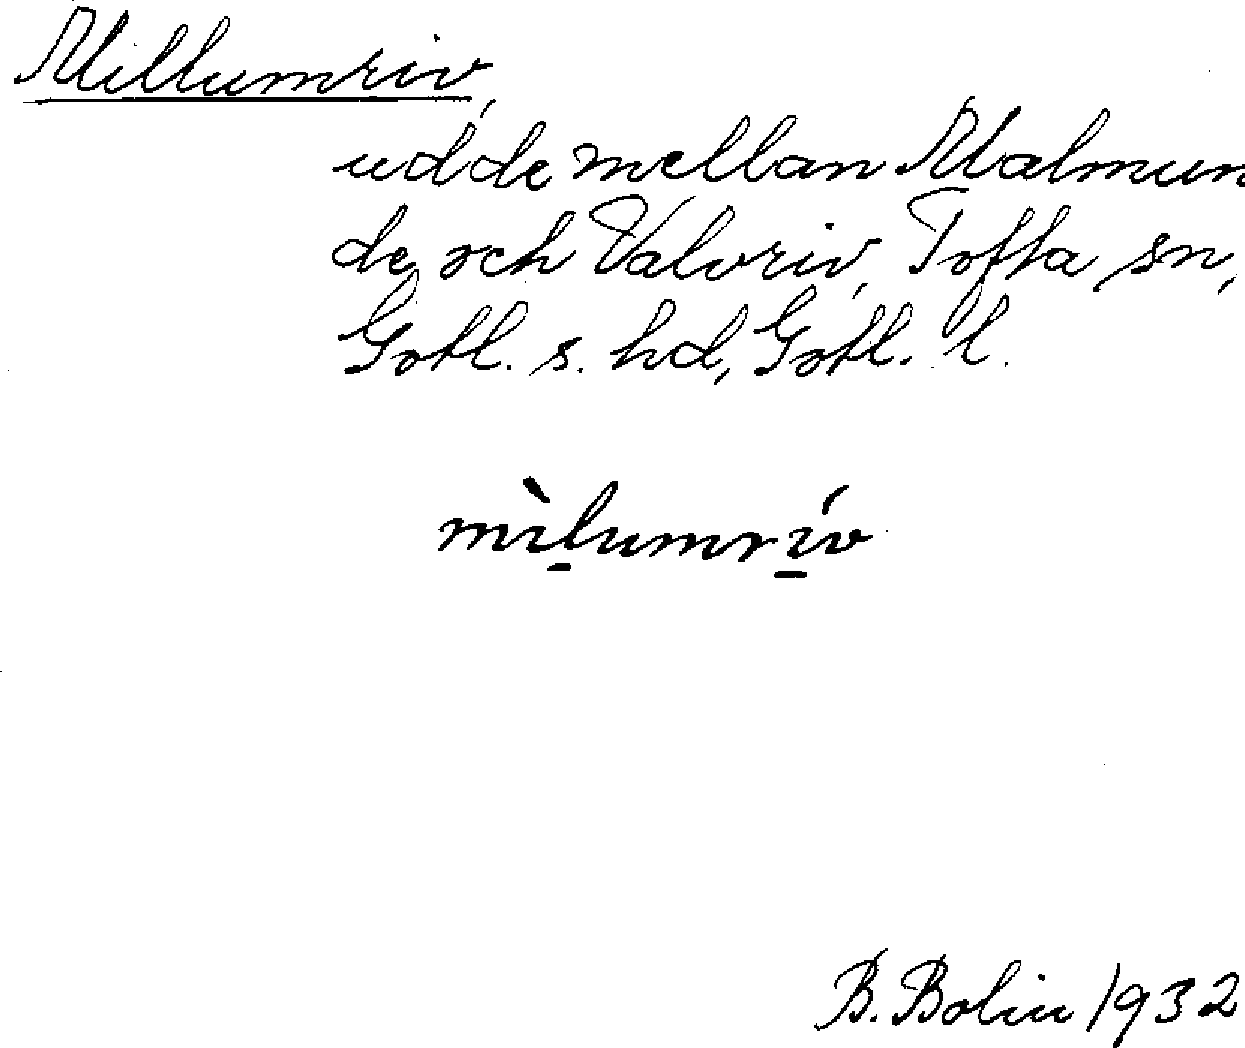 Millumriv,
udde mellan Malmun
de och Valvriv, Tofta sn,
Gotl. s. hd, Gotl. l.
mı̀lumrív
B. Bolin 1932